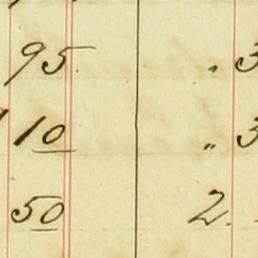 95 . 3
10 " 3
50 2.